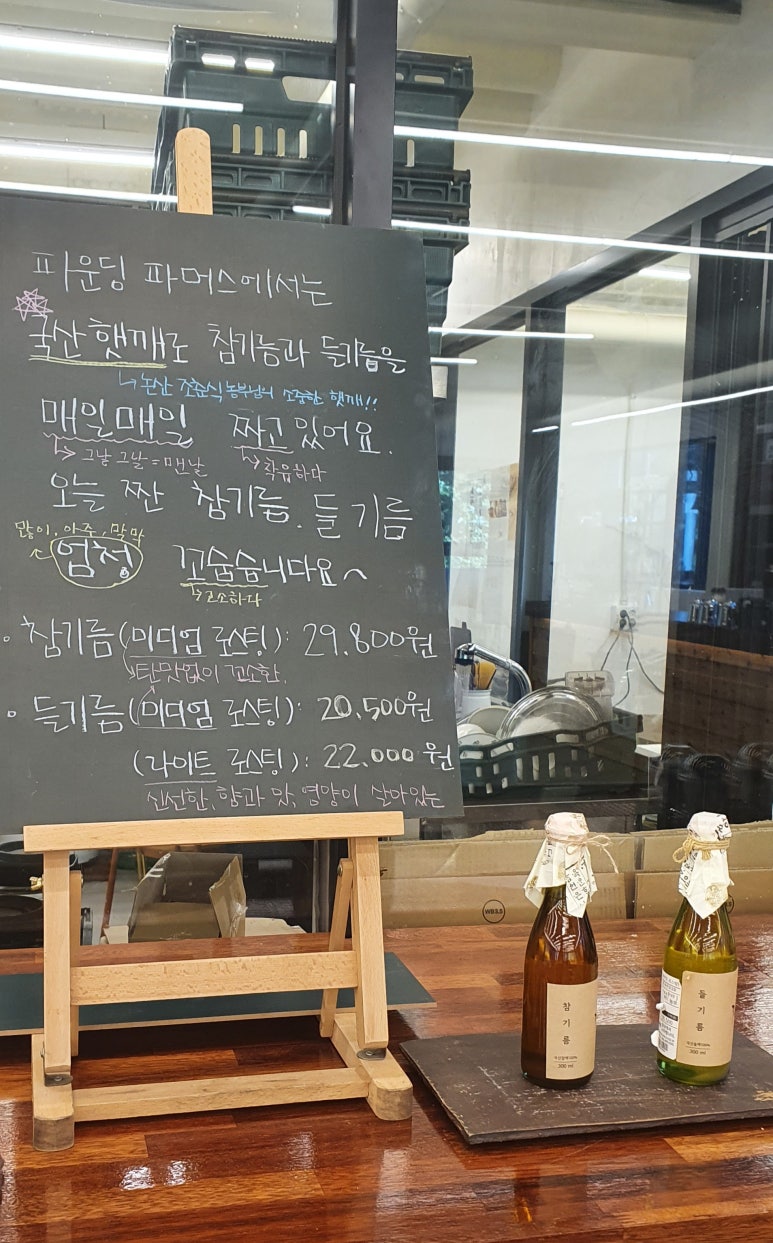 파운딩 파머스에서는
국산 햇깨로 참기름과 들기름을
↳ 논산 조준식 농부님의 소중한 햇깨!!
매일매일 짜고 있어요.
↳ 그날 그날 = 맨날 ↳ 착유하다
오늘 짠 참기름. 들기름
많이, 아주, 막 막
엄청 꼬숩습니다요~
↳ 고소하다
· 참기름 (미디엄 로스팅): 29.800원
↳ 탄맛없이 꼬소한.
· 들기름 (미디엄 로스팅): 20,500원
(라이트 로스팅): 22.000원
신선한, 향과 맛, 영양이 살아있는
WB3.S
참기름
300 ml
들기름
300 ml